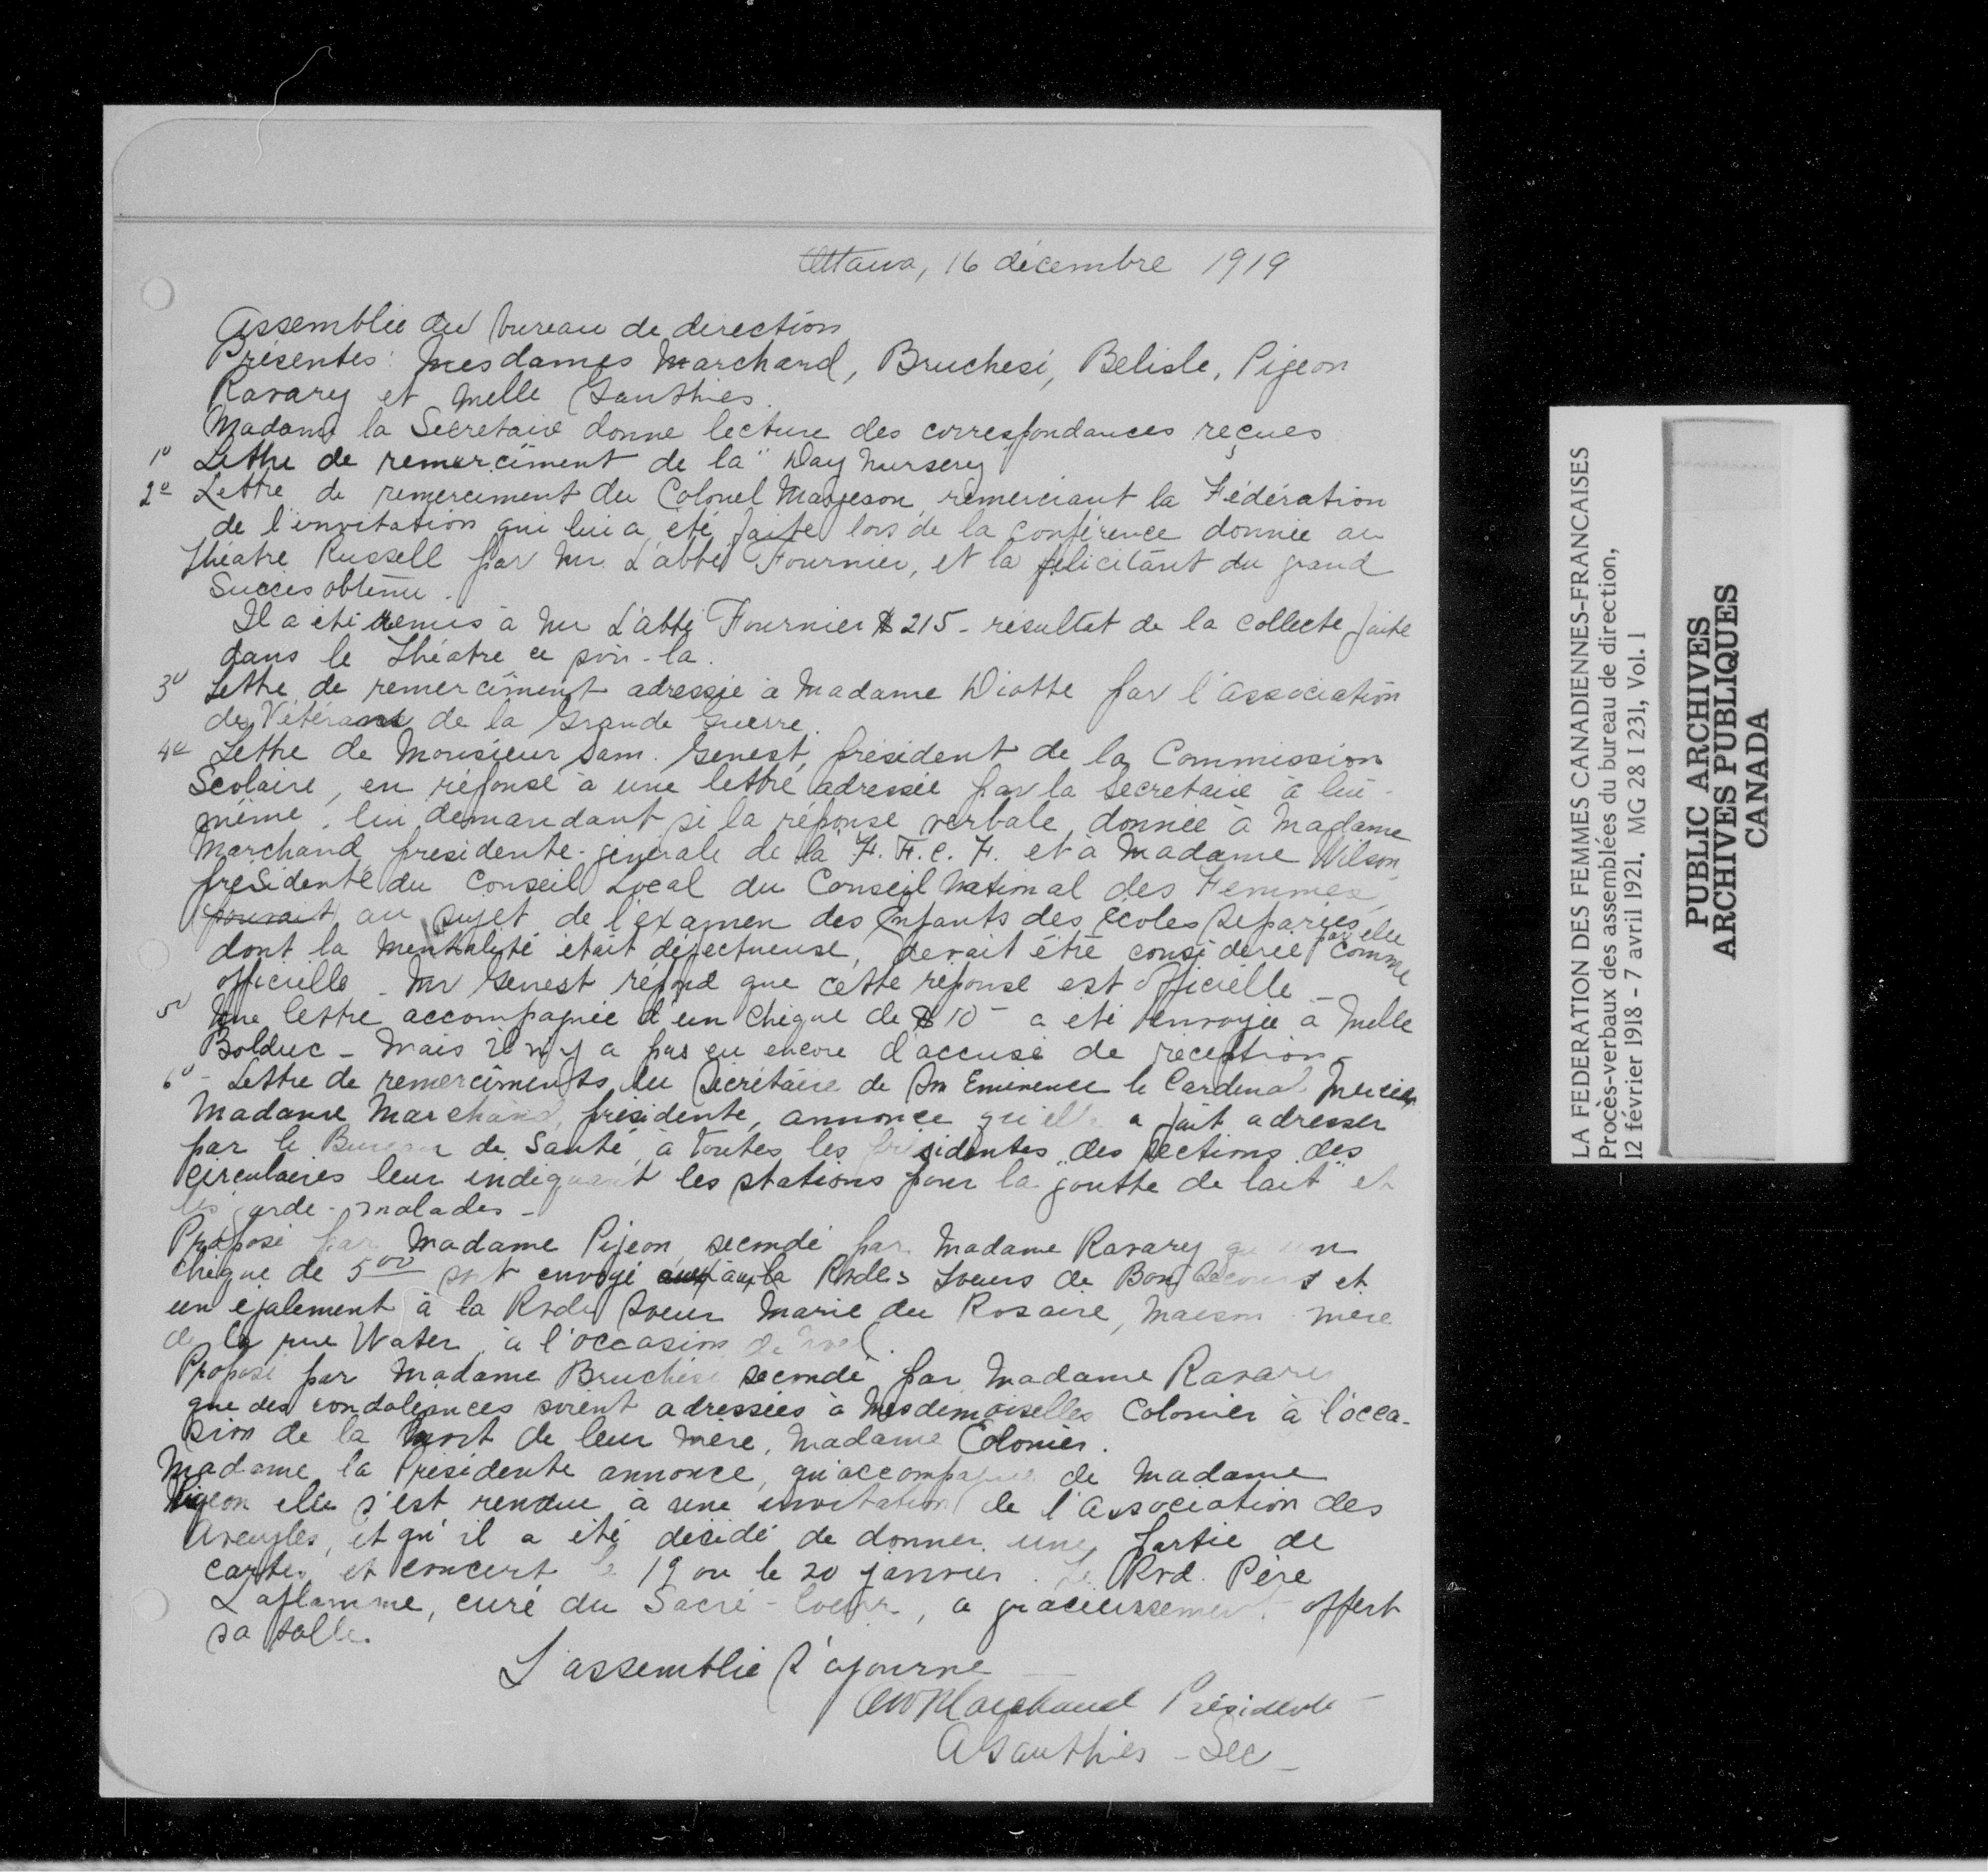 Ottawa, 16 décembre 1919
Assemblée du bureau de direction
Présentes: Mesdames Marchand, Bruchesi, Belisle, Pigeon
Ravary et Melle Gauthier.
Madame la Secretaire donne lecture des correspondances reçues
1º Lettre de remerciment de la "Day Nursery
2º Lettre de remerciment du Colonel Margeson, remerciant la Fédération
de l'invitation qui lui a été faite lors de la conférence donnée au
Théatre Russell par Mr. L'abbé Fournier, et la félicitant du grand
Succes obtenu.
Il a été remis à Mr L'abbé Fournier $215 - résultat de la collecte faite
dans le Théatre ce soir-la.
3º Lettre de remerciment adressée à Madame Diotte par l'Association
des Vétérans de la Grande Guerre.
4º Lettre de Monsieur Sam. Genest, président de la Commission
Scolaire, en réponse à une lettre adressée par la Secretaire à lui-
même, lui demandant si la réponse verbale, donnée à Madame
Marchand, presidente-générale de la F. F. C. F. et a Madame Wilson,
presidente du Conseil Local du Conseil National des Femmes,
pouvait au sujet de l'examen des Enfants des écoles Séparées
dont la mentalité était défectueuse, devait être considérée par elle comme
officielle - Mr Genest répond que cette réponse est officielle -
5º Une lettre accompagnée d'un chèque de $10 - a été envoyée à Melle
Bolduc - Mais il n'y a pas eu encore d'accusé de réception -
6º - Lettre de remerciments du Sécrétaire de Son Eminence le Cardinal Mercier
Madame Marchand, présidente, annonce qu'elle a fait adresser
par le Bureau de Santé, à toutes les présidentes des sections des
circulaires leur indiquant les stations pour la "goutte de lait" et
les garde-malades -
Proposé par Madame Pigeon, secondé par Madame Ravary qu'un
chèque de 5 00 soit envoyé aux à la Rvdes Soeurs de Bon Secours et
un également à la Rvde Soeur Marie du Rosaire, Maison mère
de la rue Water, à l'occasion de Noel.
Proposé par Madame Bruchési secondé par Madame Ravary
que des condoléances soient adressées à Mesdemoiselles Colonier à l'occa-
sion de la mort de leur mère, Madame Colonier.
Madame la Présidente annonce, qu'accompagnée de Madame
Pigeon elle s'est rendue à une invitation de l'Association des
Aveugles, et qu'il a été décidé de donner une partie de
cartes et concert le 19 ou le 20 janvier. Le Rvd. Père
Laflamme, curé du Sacré-Coeur, a gracieusement offert
sa salle.
L'assemblée s'ajourne
Marchand Présidente -
A Gauthier - Sec -
LA FEDERATION DES FEMMES CANADIENNES-FRANCAISES
Procès-verbaux des assemblées du bureau de direction,
12 février 1918 - 7 avril 1921. MG 28 I 231, Vol. 1
PUBLIC ARCHIVES
ARCHIVES PUBLIQUES
CANADA